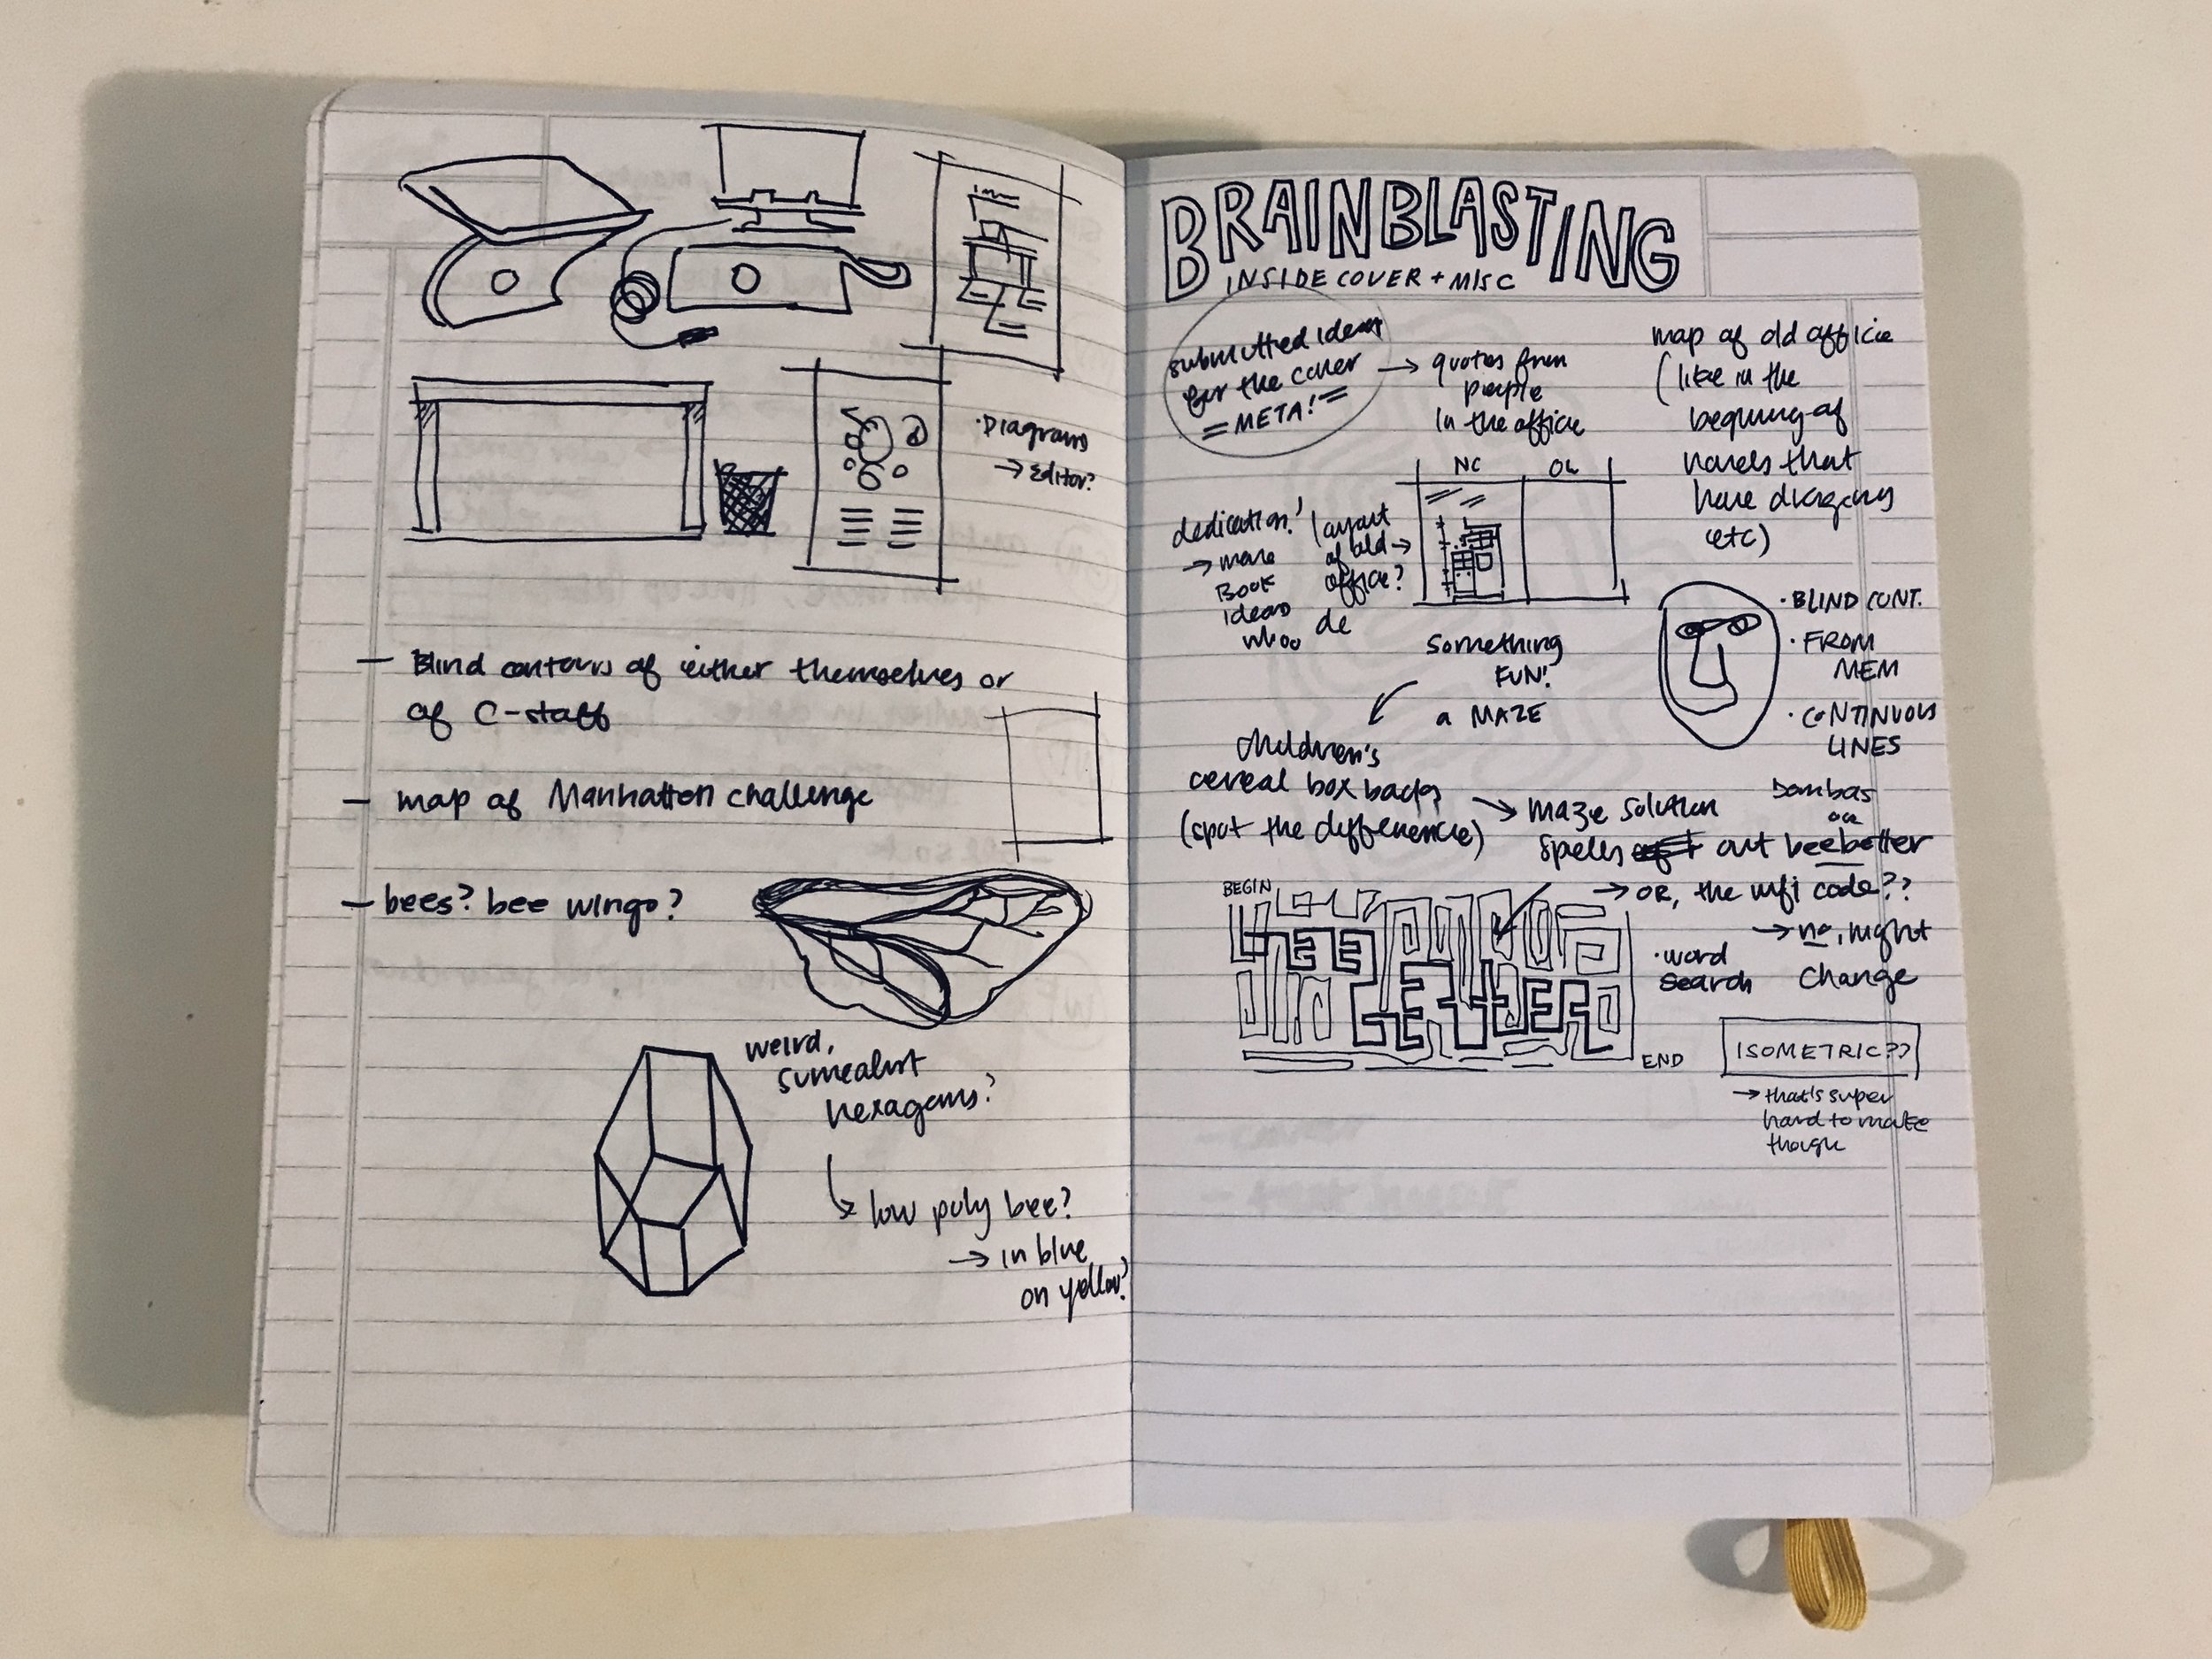 · Diagrams
→ Editor?
— Blind contours of either themselves or
of C-staff
— map of Manhattan challenge
— bees? bee wings?
weird,
surrealist
hexagons?
low poly bee?
→ in blue
on yellow?
BRAINBLASTING
INSIDE COVER + MISC
submitted ideas
for the cover
= META! =
→ quotes from
people
in the office
map of old officie
(like in the
beginning of
novels that
have diagrams
etc)
NC
dedication?
→ more
Book
ideas
layout
of old →
office?
Something
FUN!
a MAZE
· BLIND CONT.
· FROM
MEM
· CONTINUOUS
LINES
children's
cereal box backs
(spot the difference)
→ maze solution
spells out beebetter
Bombas
or
→ OR, the wifi code??
→ no, might
change
BEGIN
END
· word
search
ISOMETRIC??
→ that's super
hard to make
though